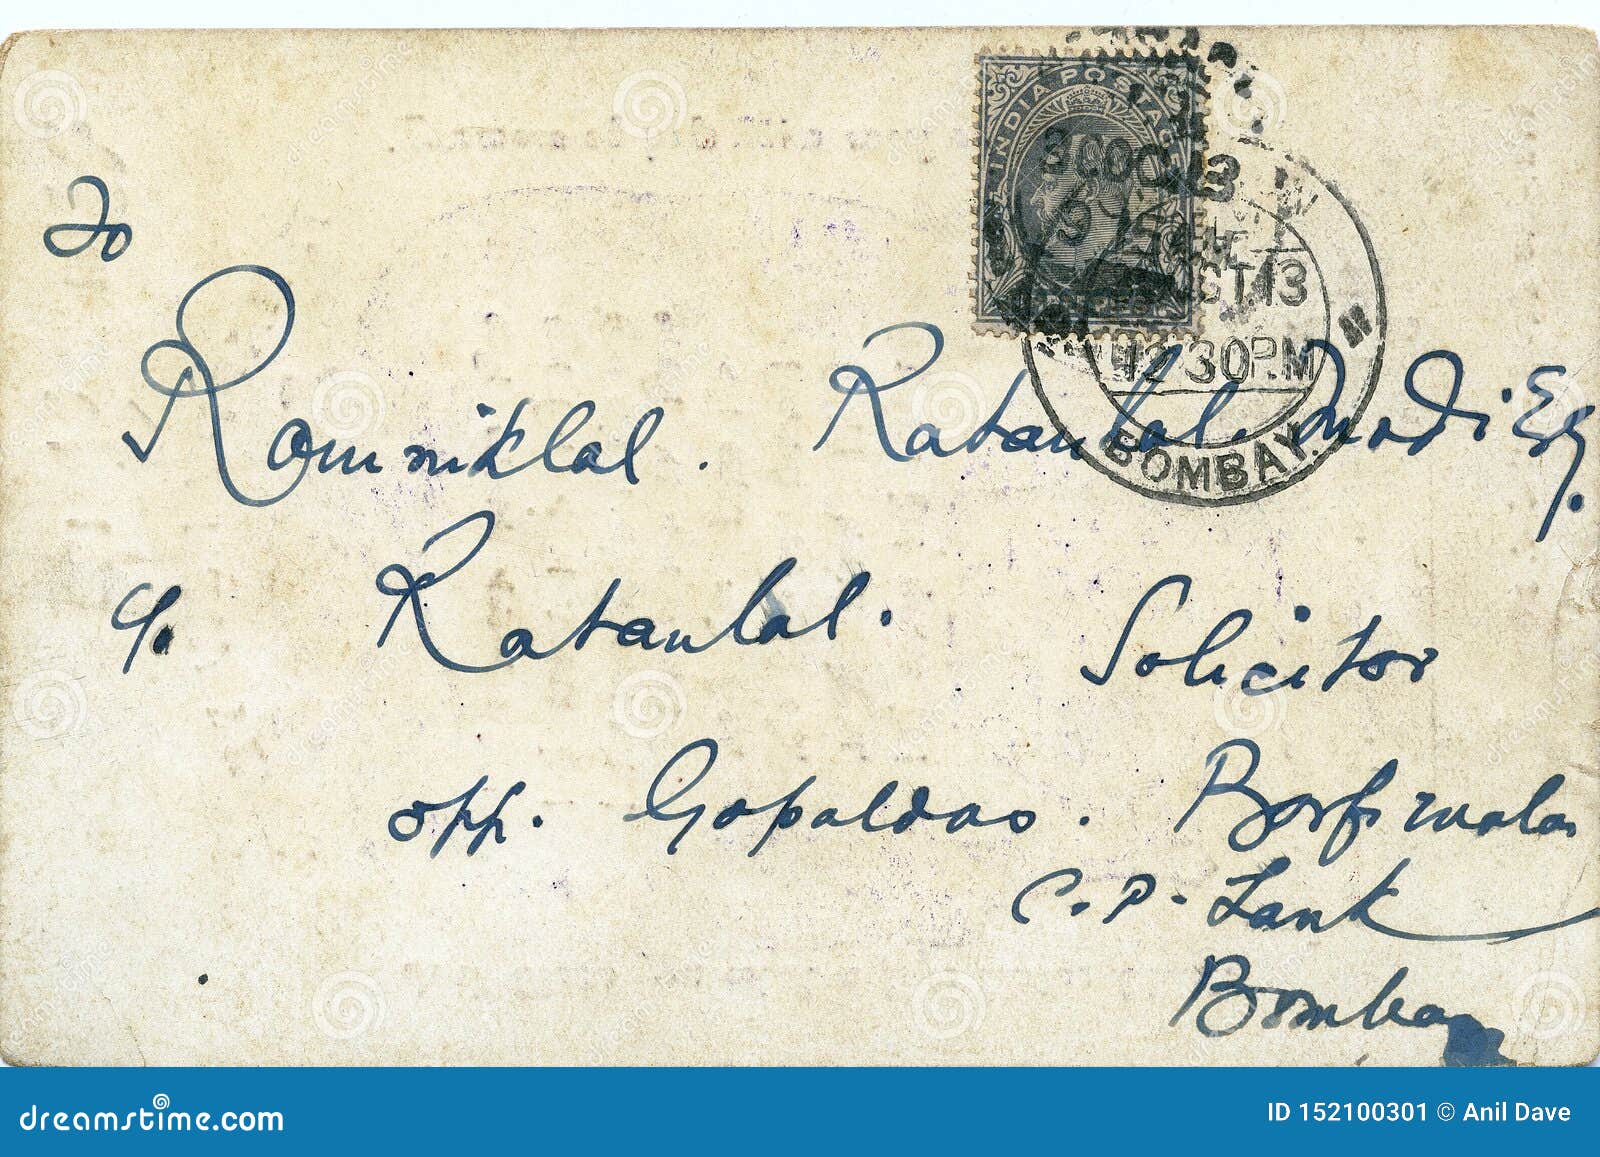 INDIA POSTAGE
30 OC 13
CT.13
12 30 P.M
BOMBAY.
To
Ramniklal. Ratanlal. Modi Esq.
C/o. Ratanlal. Solicitor
opp. Gopaldas. Borfiwala
C.P. Tank
Bombay
dreamstime.com
ID 152100301 © Anil Dave